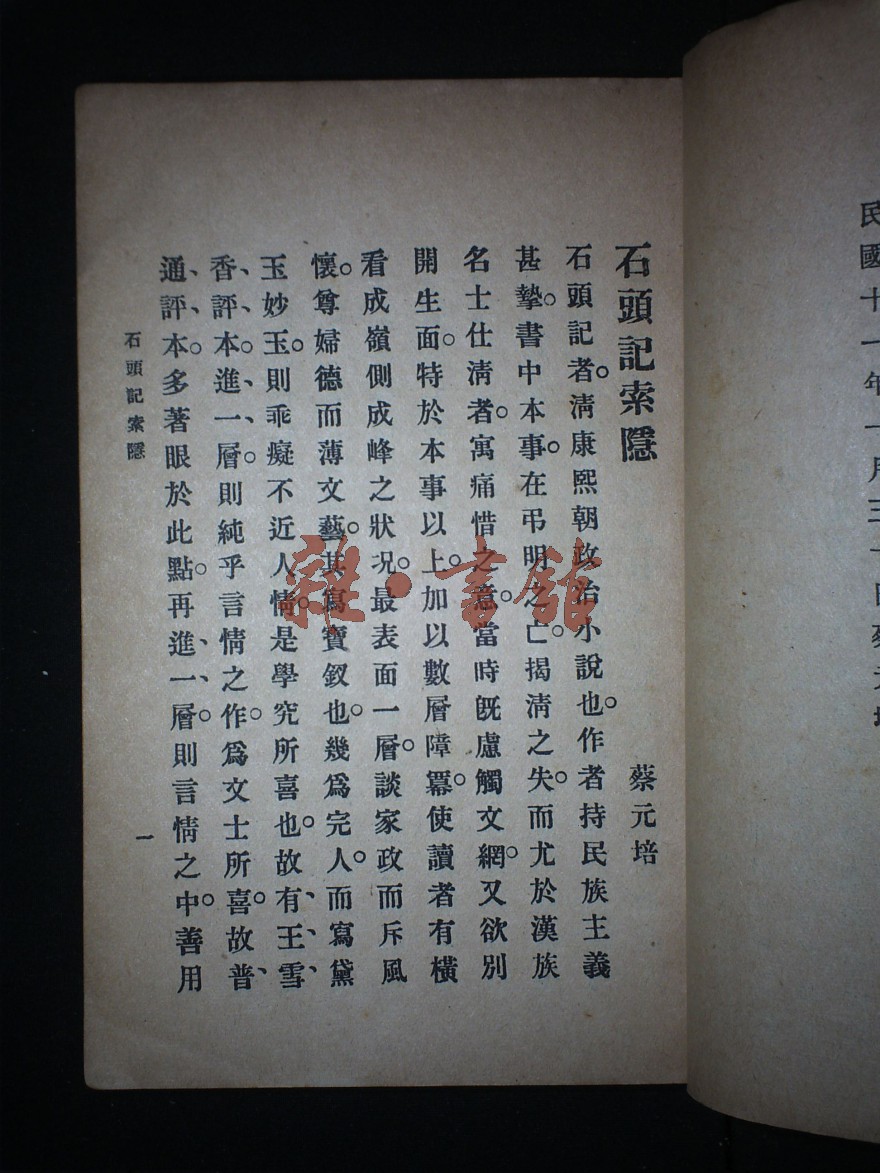 民國十一年一月三十日蔡元培
石頭記索隱
蔡元培
石頭記者。清康熙朝政治小說也。作者持民族主義
甚摯。書中本事。在弔明之亡。揭清之失。而尤於漢族
名士仕清者。寓痛惜之意。當時旣慮觸文網。又欲別
開生面。特於本事以上。加以數層障冪。使讀者有橫
看成嶺側成峰之狀况。最表面一層。談家政而斥風
懷。尊婦德而薄文藝。其寫寶釵也。幾爲完人。而寫黛
玉妙玉。則乖癡不近人情。是學究所喜也。故有王雪
香評本。進一層。則純乎言情之作。爲文士所喜。故普
通評本。多著眼於此點。再進一層。則言情之中。善用
石頭記索隱
一
雜·書館